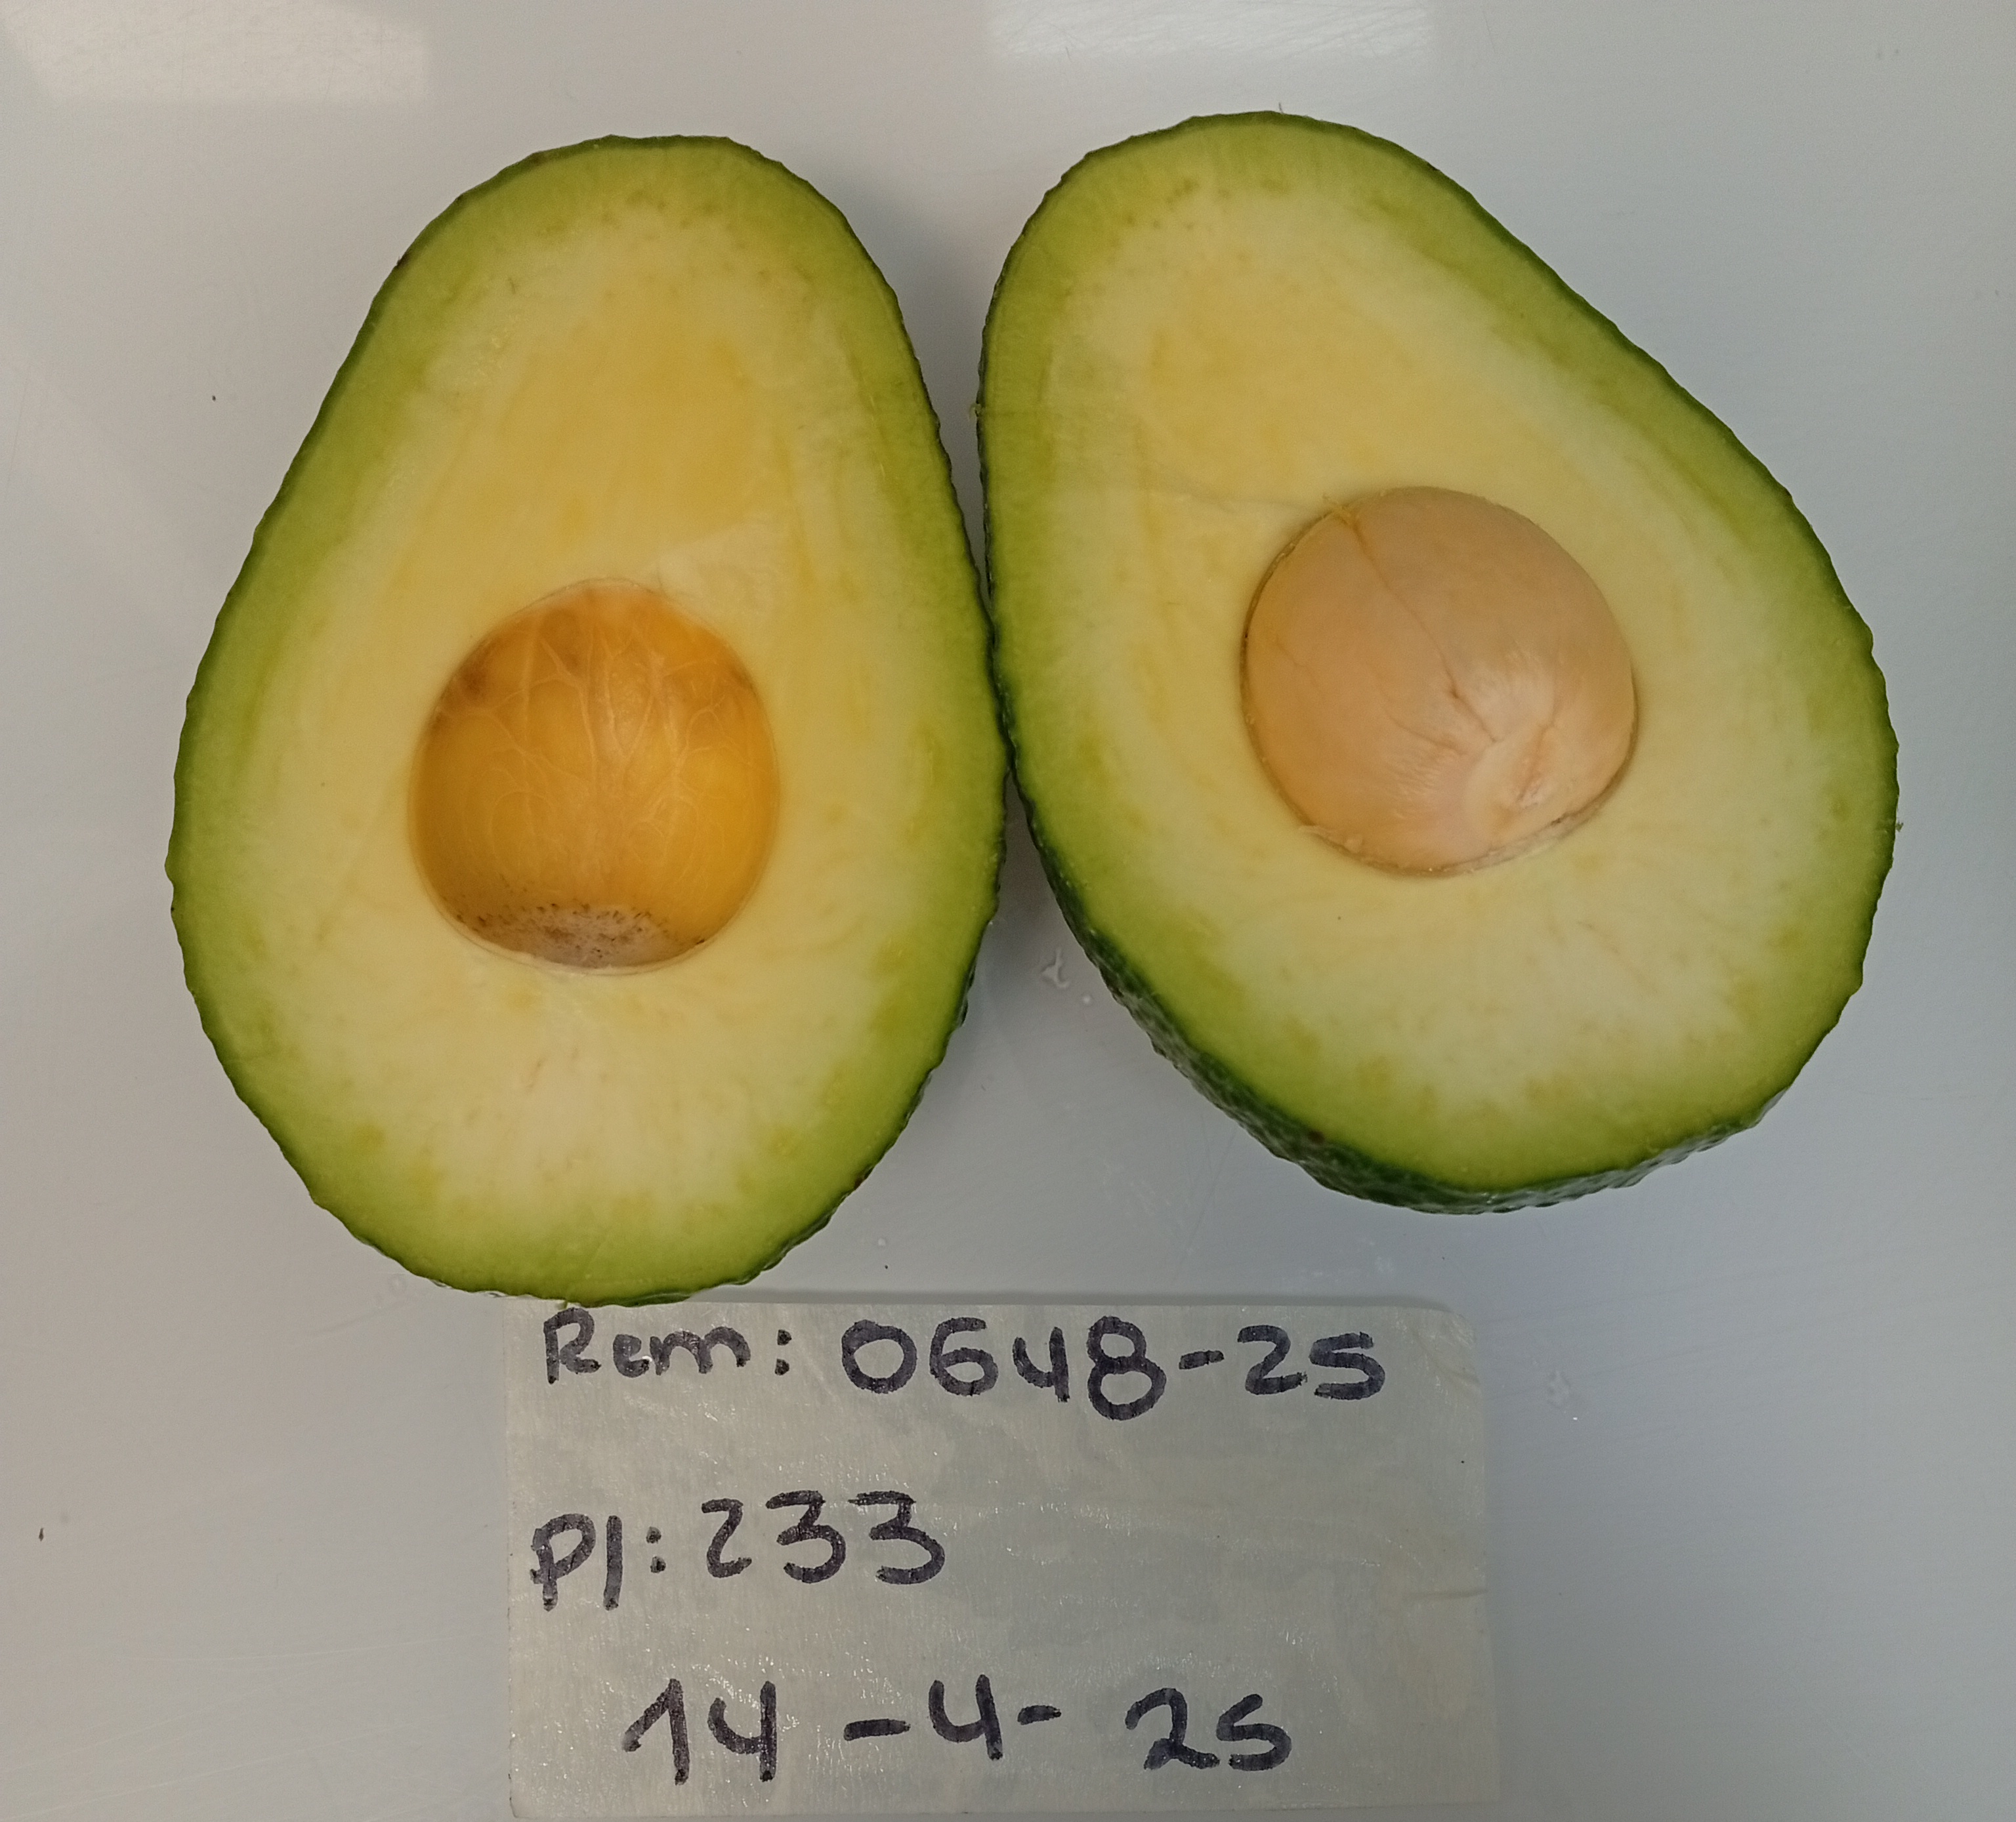 Rem: 0648-25
Pl: 233
14-4-25